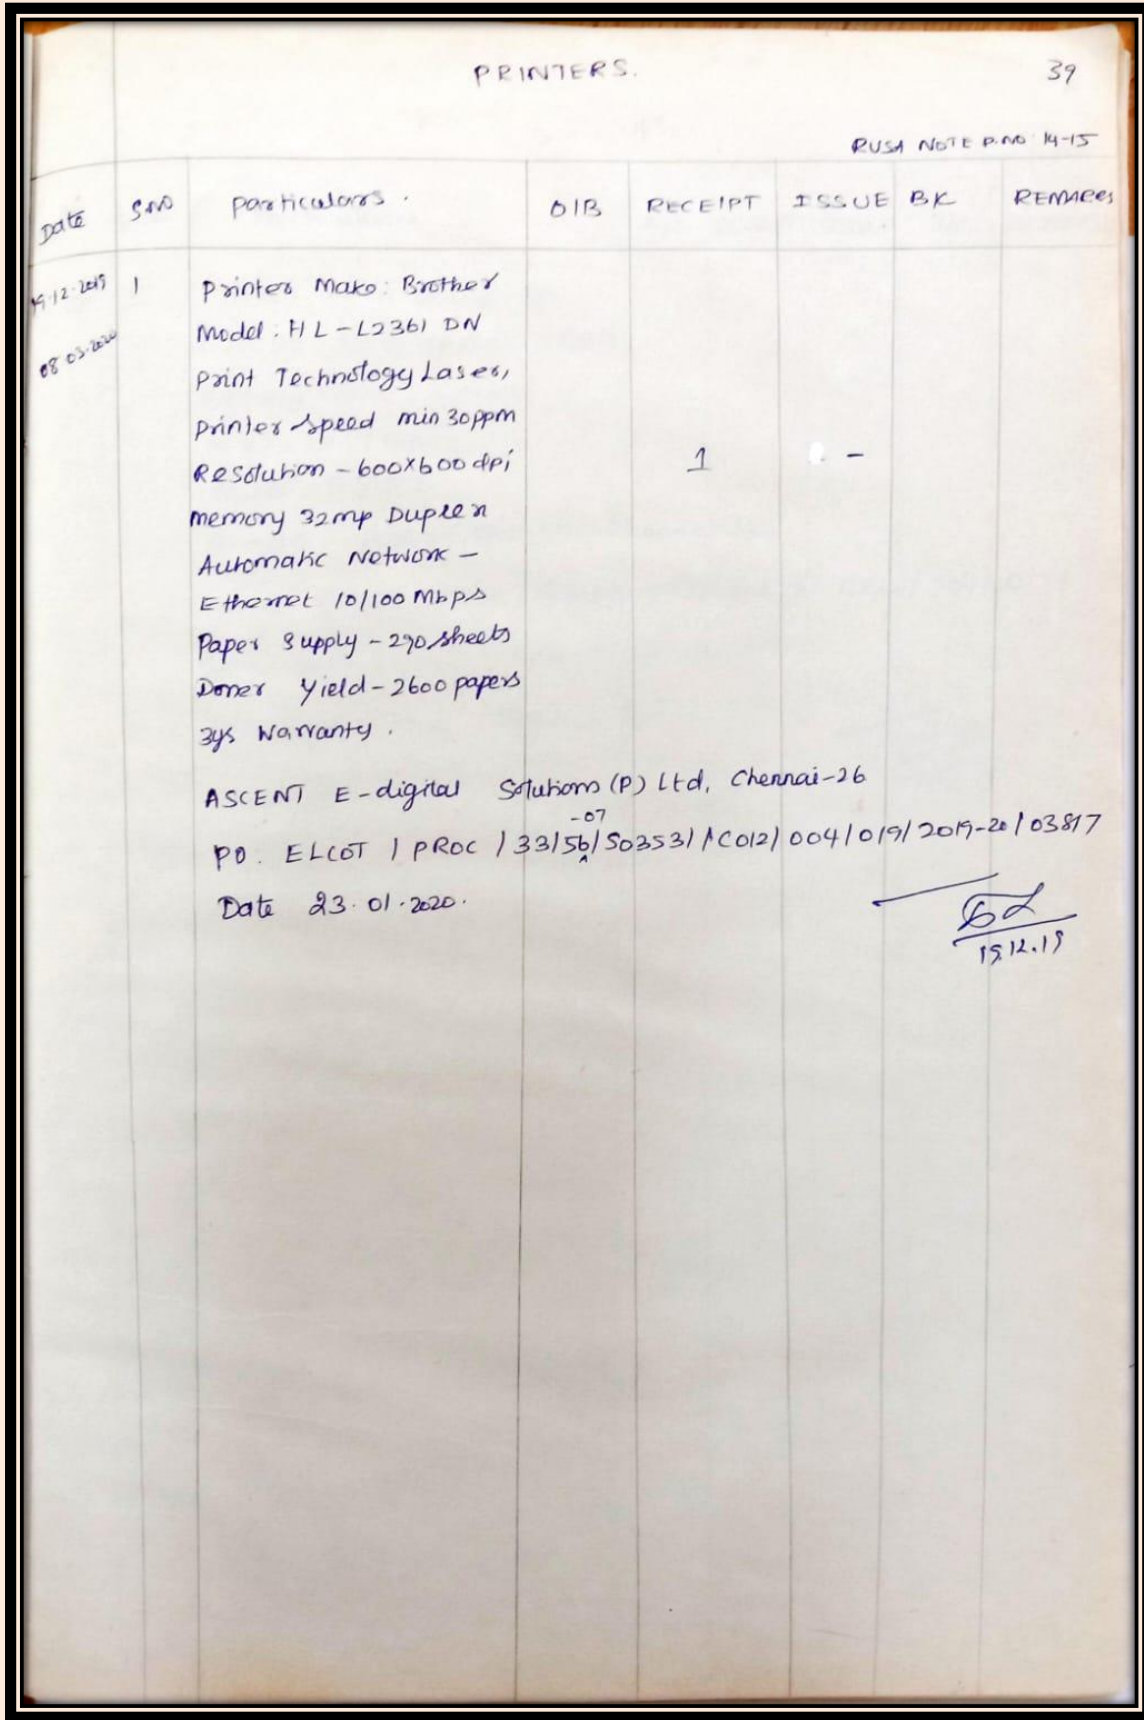 PRINTERS. 39
RUSA NOTE P.NO 14-15
Date SNO Particulars. O/B RECEIPT ISSUE BK REMARKS
19.12.2019 1 Printer Make: Brother
08.03.2020 Model: HL-L2361 DN
Print Technology Laser,
Printer speed min 30ppm
Resolution - 600x600 dpi 1 -
memory 32mp Duplex
Automatic Network -
Ethernet 10/100 Mbps
Paper Supply - 270 sheets
Doner Yield - 2600 papers
3ys Warranty.
ASCENT E-digital Solutions (P) Ltd, Chennai-26
-07
PO. ELCOT / PROC / 33/56/S0353/ AC012/004/019/2019-20/03817
Date 23.01.2020.
19.12.19